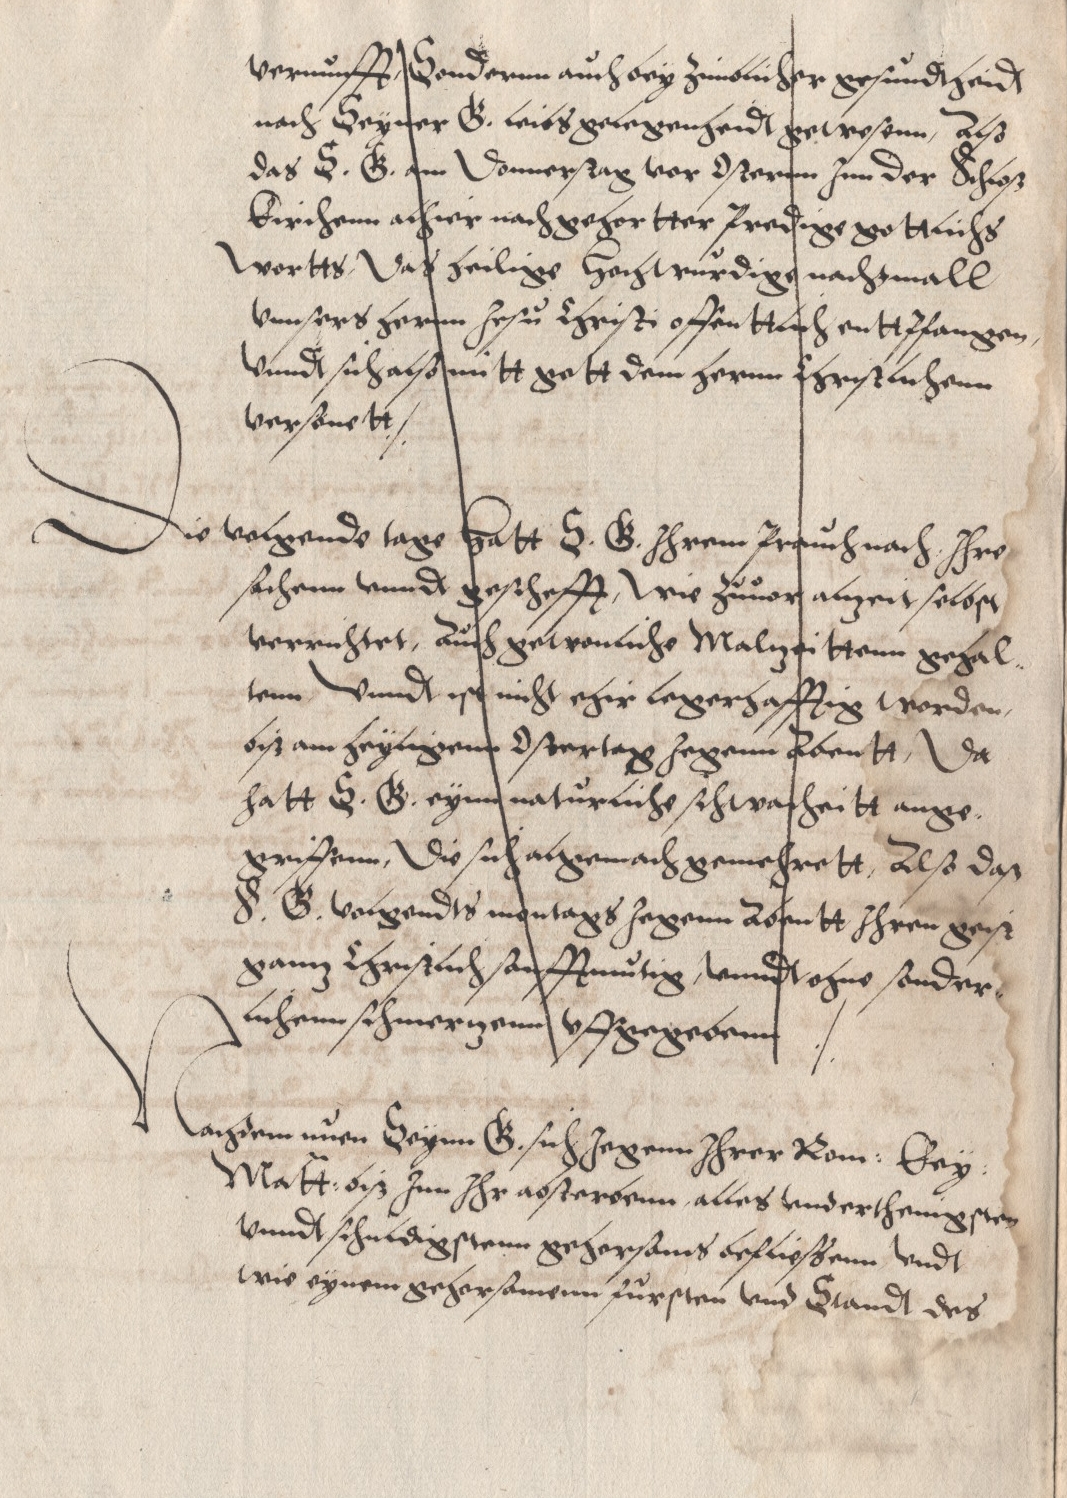 vernunfft, Sondernn auch bey zimblicher gesundtheidt
nach Seyner G. leibs gelegenheidt gewesenn, Also
das S. G. am Donnerstag vor Osternn Inn der Schlos
Kirchenn alhier nach gehortter Predige gottlichs
Wortts, Das heilige Hochwurdige nachtmall
vnnsers hernn Jesu Christi offenttlich enttPfangen,
Vnndt sich also mitt gott dem hernn Christlichenn
versonett /.
Die volgende tage Hatt S. G. Ihrem Prauch nach, Ihre
sachenn vnndt geschefft, Wie zuuor alzeit selbst
verrichtet, Auch gewonliche Malzeittenn gehal-
tenn Vnndt ist nicht ehir legerhafftig worden,
bis am heyligenn Ostertag Jegenn Abentt, Da
hatt S. G. eynn naturliche schwacheitt ange-
griffenn, Die sich algemach gemehrett, Also das
S. G. volgendts montags Jegenn Abentt Ihren geist
gantz Christlich sanfftmutig, vnndt ohne sonder-
lichenn schmertzenn vffgegebenn /.
Nachdem nuen Seynn G. sich Jegenn Ihrer Rom: Key:
Matt: bis Inn Ihr absterbenn, alles vnderthenigsten
vnndt schuldigstenn gehorsams befliessenn vndt
wie eynem gehorsamenn fursten vnd Standt des